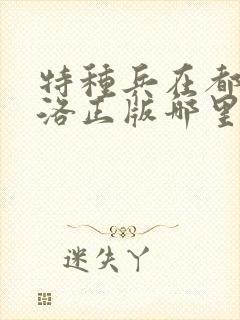 特種兵在都
洛正版哪里
迷失丫